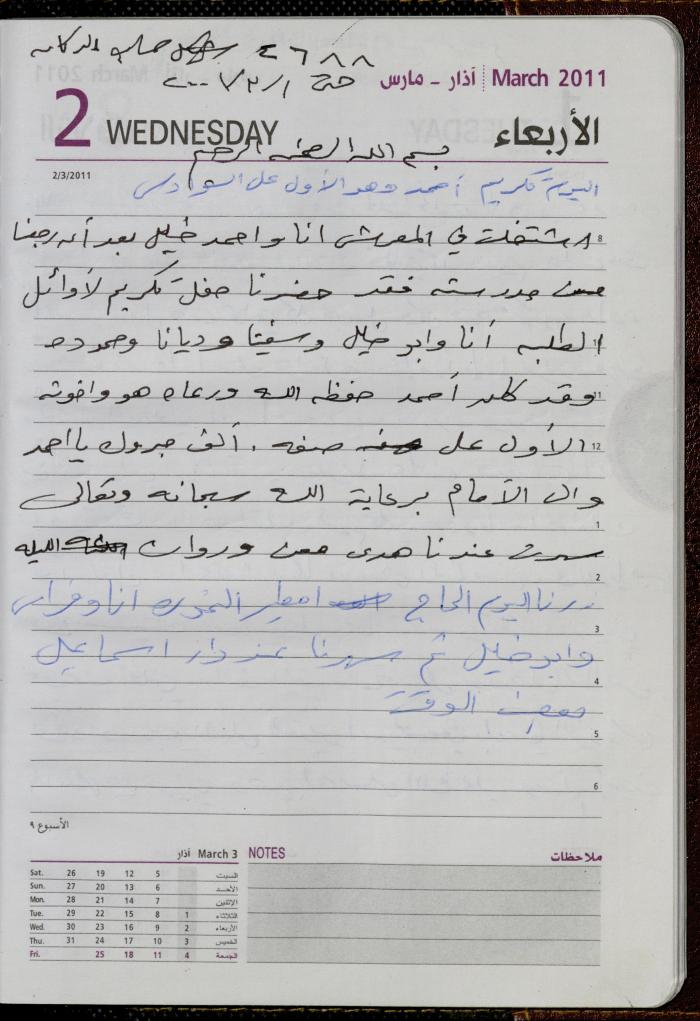 ٤٦٨٨ حساب الدكانه
حتى ٢٠٠٧/٢/١
March 2011 آذار - مارس
2 WEDNESDAY الأربعاء
بسم الله الرحمن الرحيم
2/3/2011
اليوم تكريم أحمد وهو الأول على السوادس
8 اشتغلت في المعرش انا واحمد خليل بعد أن رجعنا
من مدرسته فقد حضرنا حفل تكريم لأوائل
الطلبه أنا وابو خليل وسفيتا وديانا وحموده
11 وقد كان أحمد حفظه الله ورعاه هو واخوته
12 الأول على صفه . ألف مبروك يا احمد
والى الأمام برعاية الله سبحانه وتعالى
1
سهرت عندنا هدى معن وروان الليله
2
زرنا اليوم الحاج امطير انا وفراس
3
وابو خليل ثم سهرنا عند دار اسماعيل
4
بعض الوقت
5
6
الأسبوع ٩
March 3 آذار
Sat. 26 19 12 5 السبت
Sun. 27 20 13 6 الأحد
Mon. 28 21 14 7 الإثنين
Tue. 29 22 15 8 1 الثلاثاء
Wed. 30 23 16 9 2 الأربعاء
Thu. 31 24 17 10 3 الخميس
Fri. 25 18 11 4 الجمعة
NOTES ملاحظات